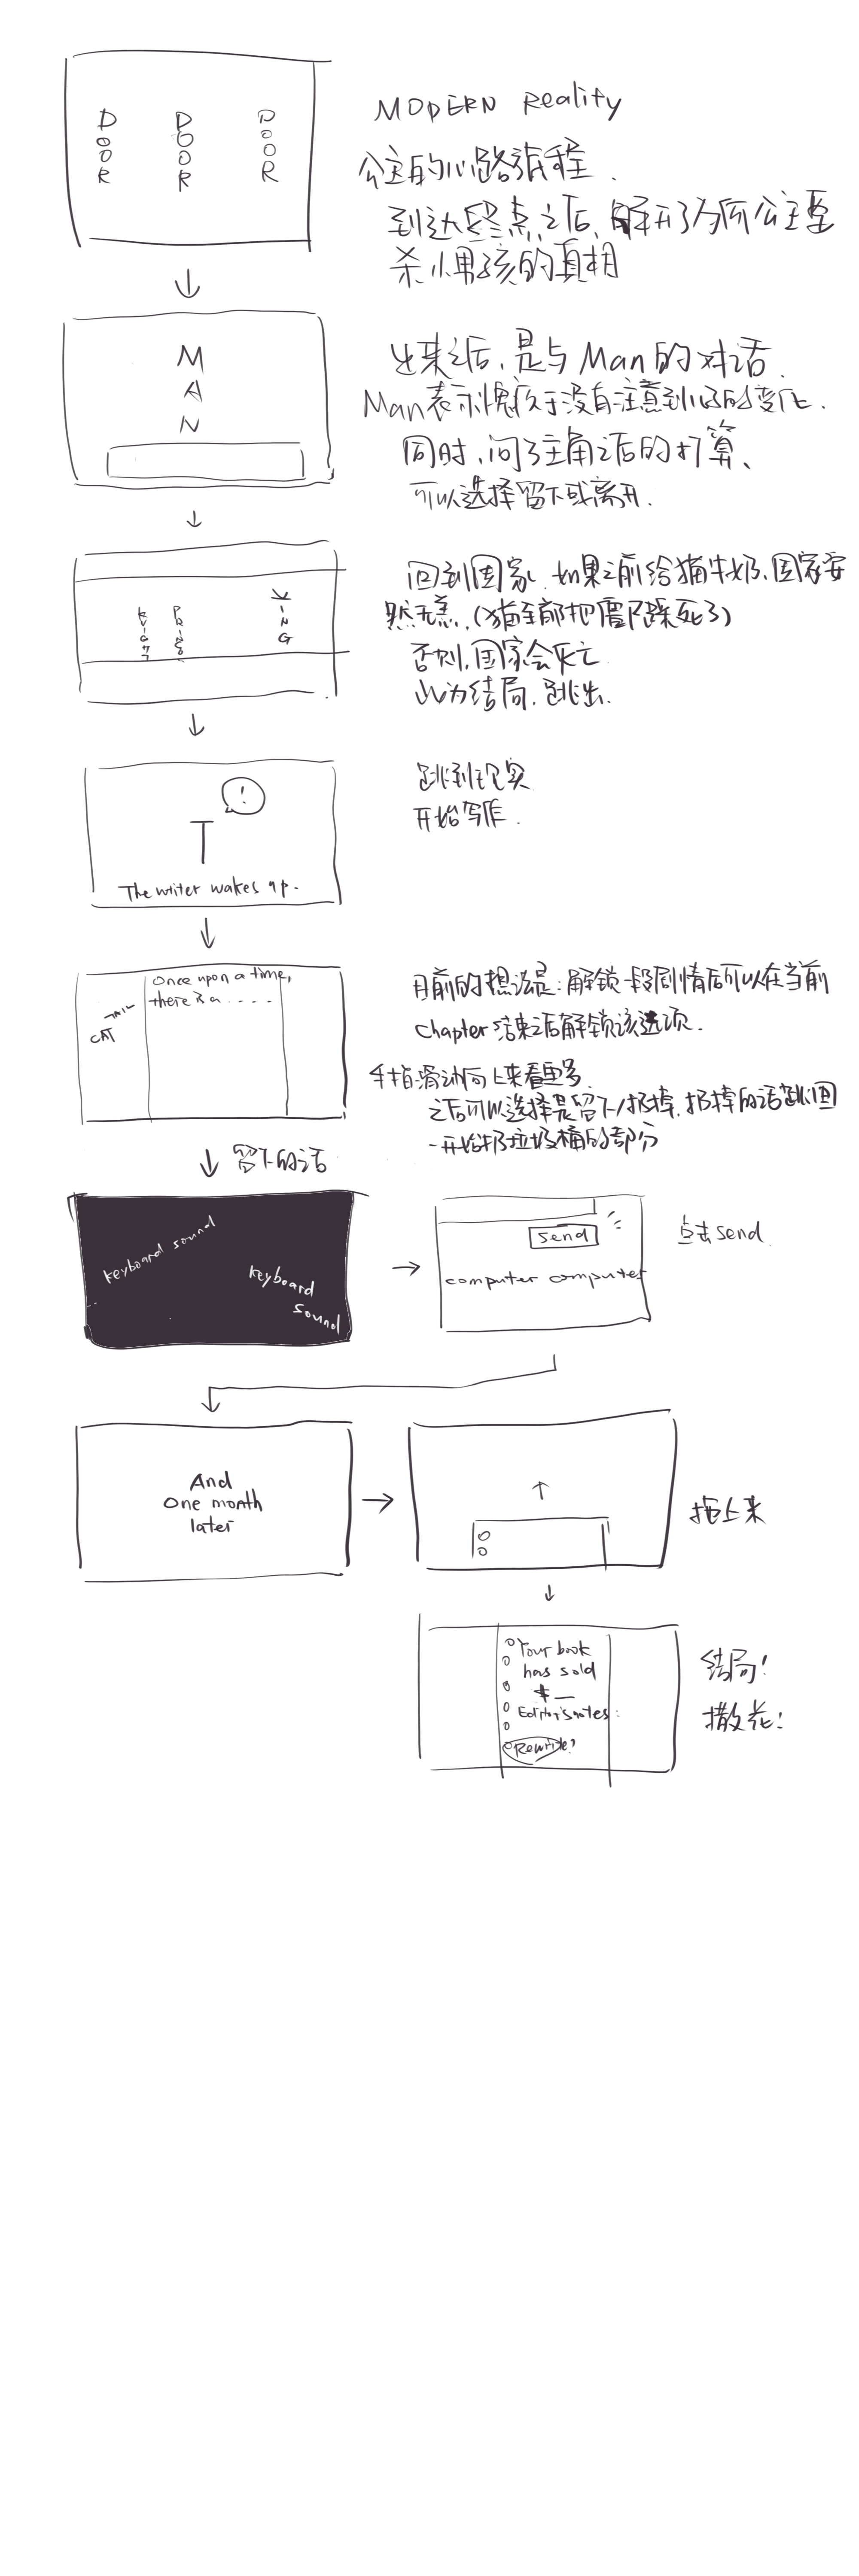 DOOR DOOR DOOR
MODERN Reality
公主的心路旅程.
到达终点之后,解开了为何公主要
杀小男孩的真相
MAN
出来之后,是与Man的对话.
Man表示愧疚于没有注意到心的变化.
同时,问了主角之后的打算、
可以选择留下或离开.
KING
回到国家,如果之前给猫牛奶,国家安
然无恙,(猫全部把僵尸踩死了)
否则,国家会灭亡
此为结局,跳出.
!
T
The writer wakes up.
跳到现实
开始写作.
CAT TAIL
Once upon a time,
there is a ....
目前的想法是:解锁一段剧情后可以在当前
Chapter结束之后解锁该选项.
手指滑动向上来看更多.
之后可以选择是留下/扔掉,扔掉的话跳回
一开始扔垃圾桶的部分
留下的话
keyboard sound
keyboard
sound
send
computer computer
点击send.
And
One month
later
拖上来
Your book
has sold
$ _
Editor's notes:
Rewrite?
结局!
撒花!